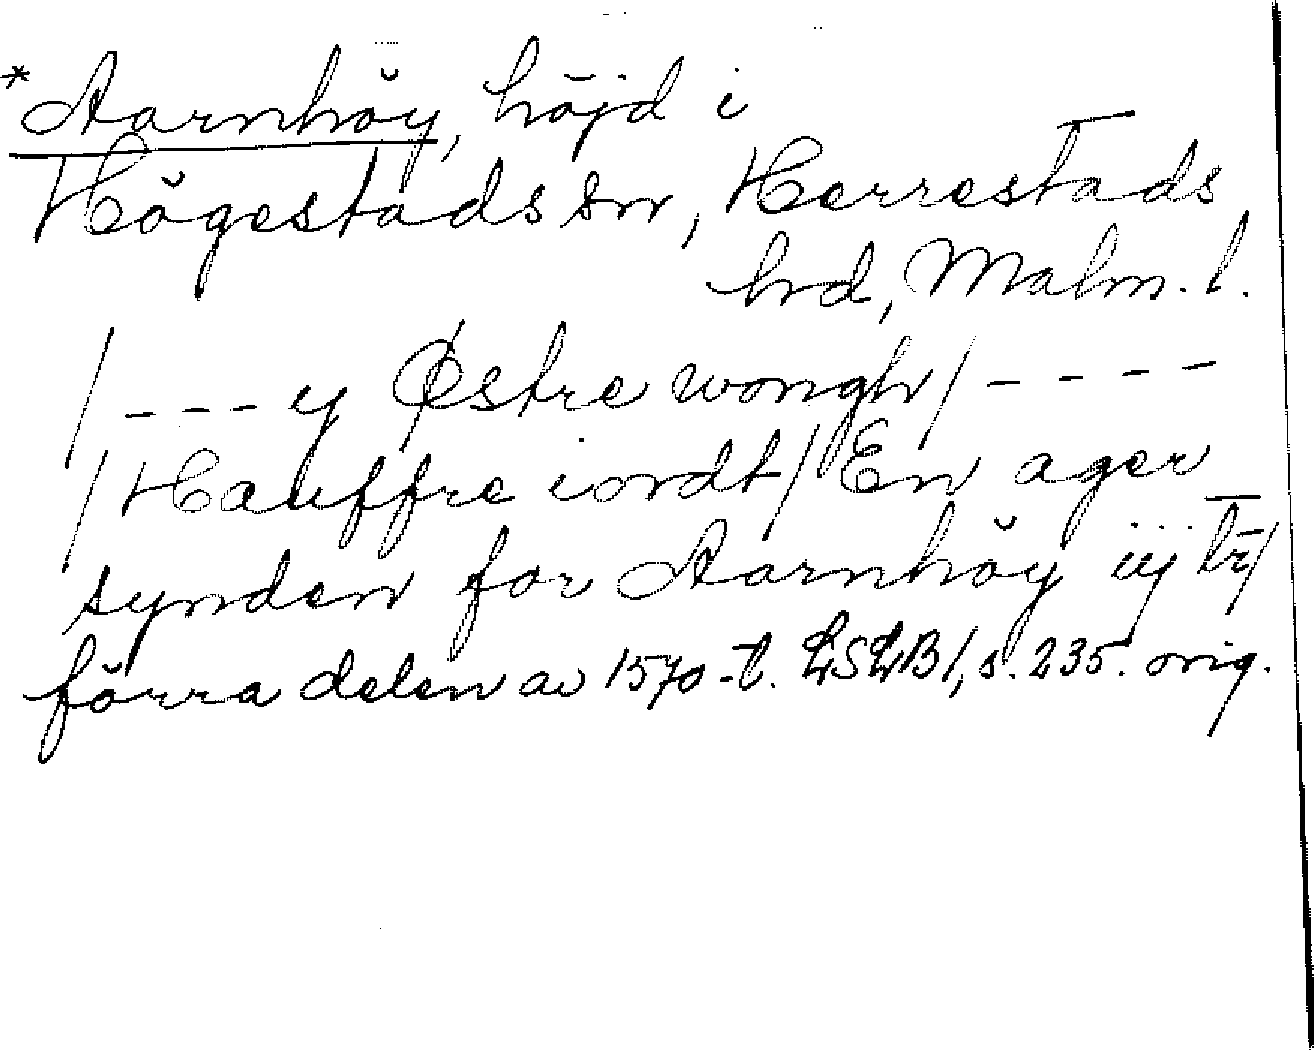 *Aarnhöy, höjd i
Högestads sn, Herrestads
hrd, Malm. l.
/---y Østre wongh/----
/Hauffre iordt/ En ager
synden for Aarnhöy iij
förra delen av 1570-t. LSLB 1, s. 235. orig.